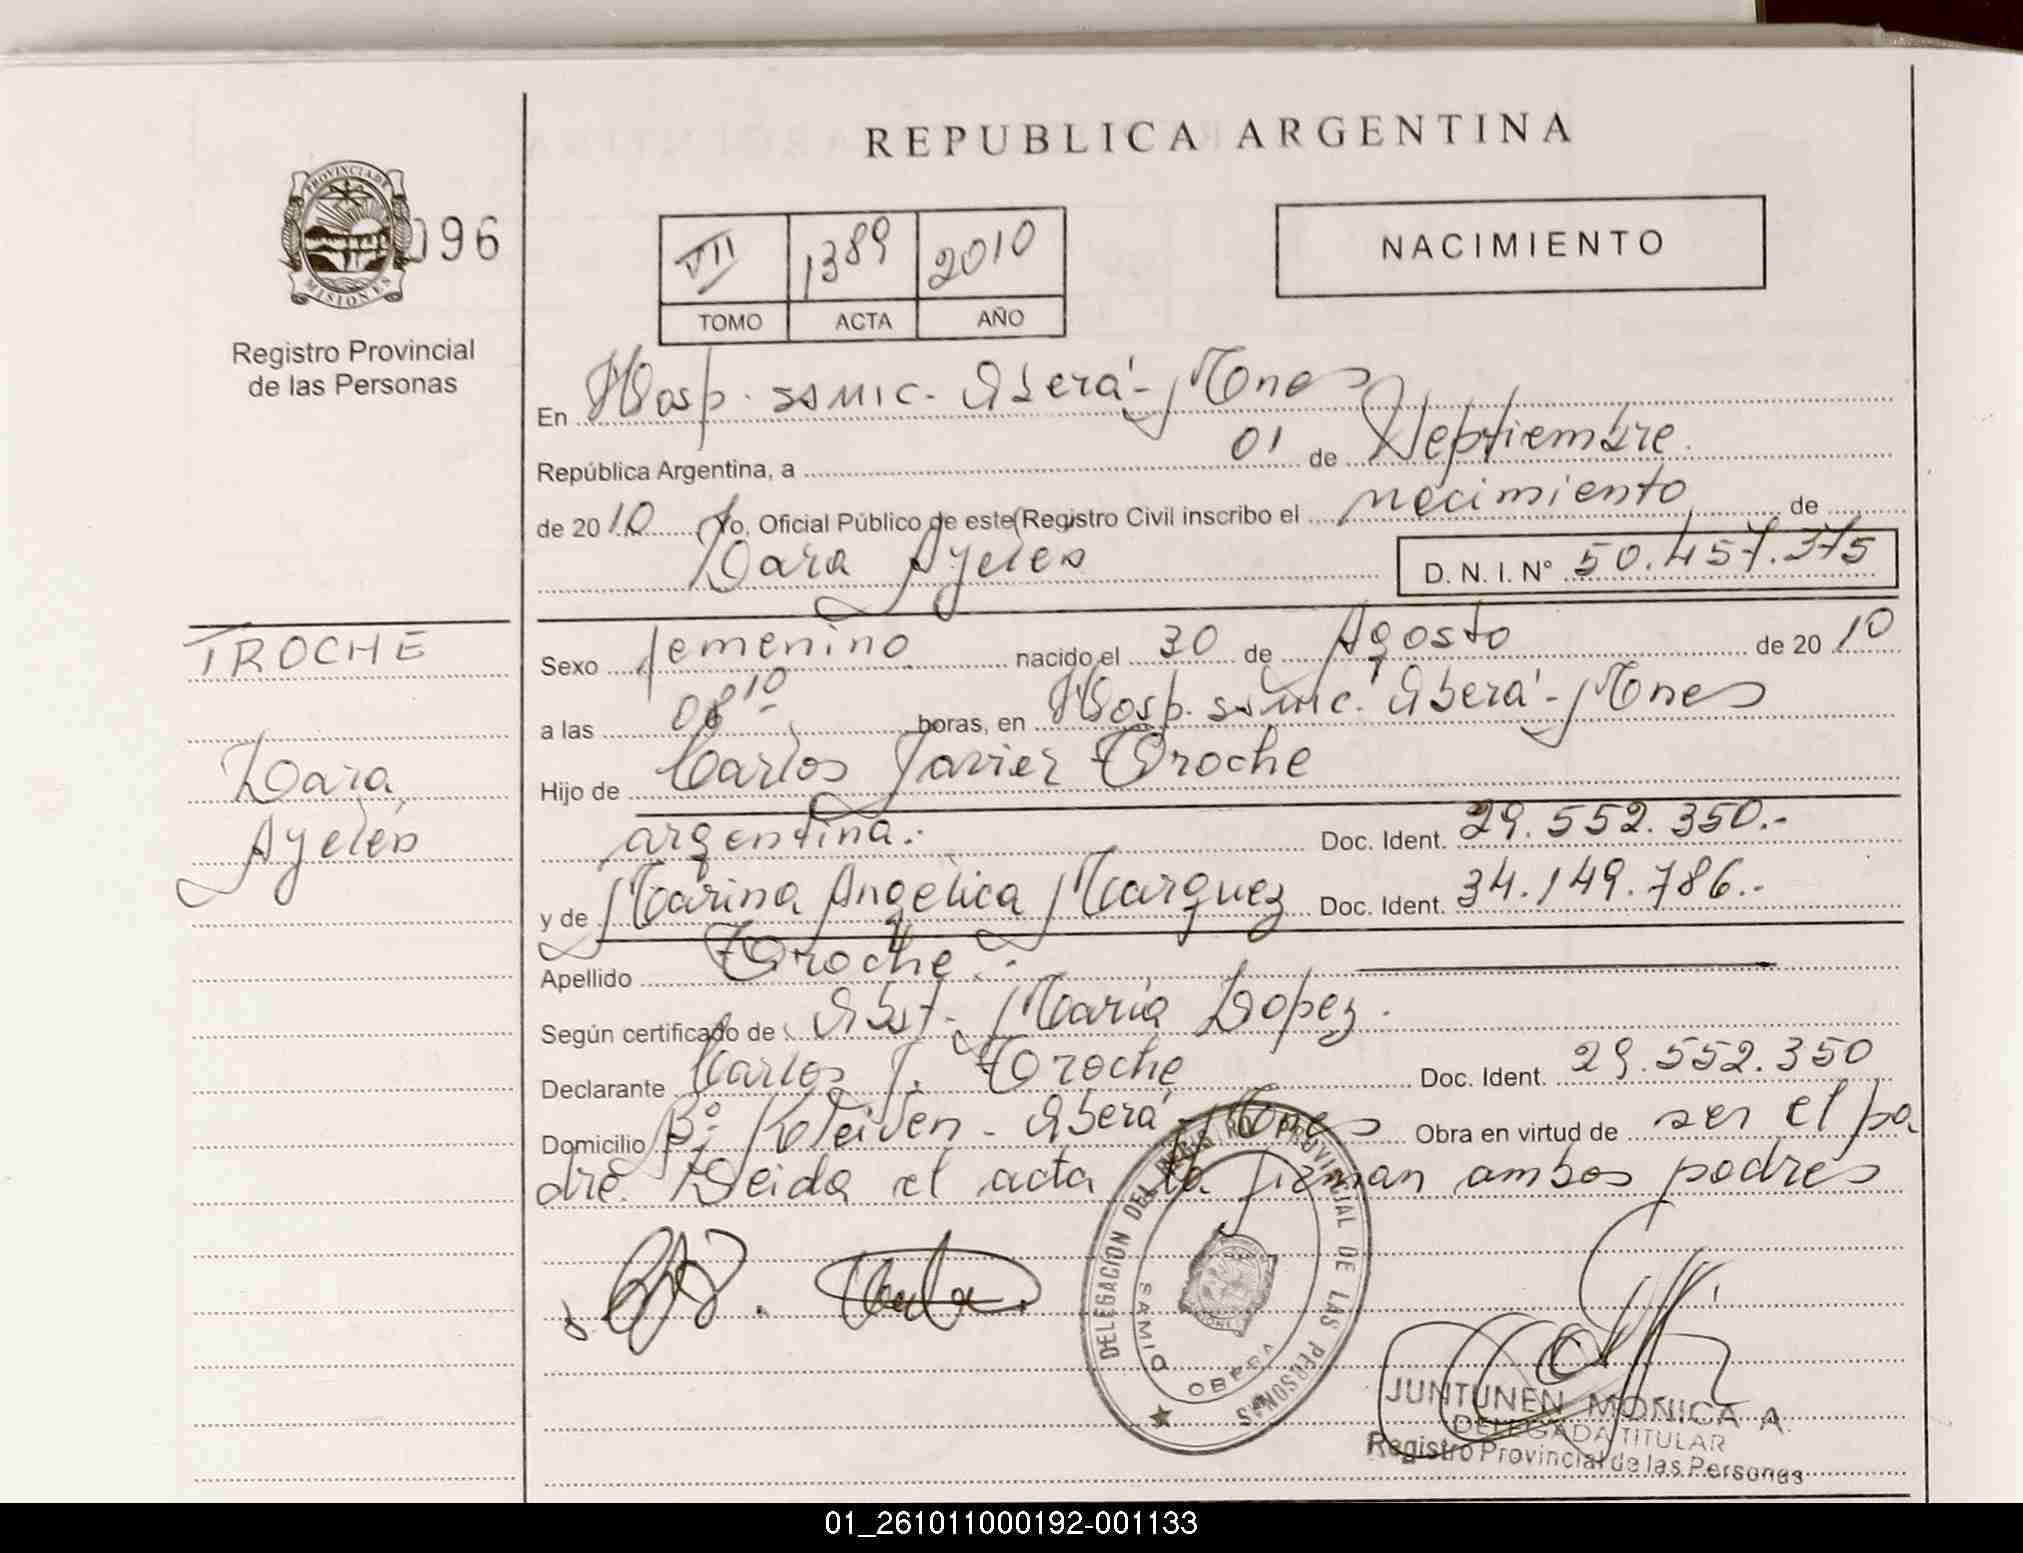 REPUBLICA ARGENTINA
PROVINCIA DE
MISIONES
096
Registro Provincial
de las Personas
VII 1389 2010
TOMO ACTA AÑO
NACIMIENTO
En Hosp. SAMIC. Oberá - Mnes
República Argentina, a 01 de Septiembre.
de 2010 Yo, Oficial Público de este Registro Civil inscribo el nacimiento de
Lara Ayelén D. N. I. Nº 50.457.375
TROCHE
Lara
Ayelén
Sexo femenino nacido el 30 de Agosto de 2010
a las 08 10 horas, en Hosp. SAMIC. Oberá - Mnes
Hijo de Carlos Javier Troche
argentina. Doc. Ident. 29.552.350.-
y de Marina Angélica Marquez Doc. Ident. 34.149.786.-
Apellido Troche
Según certificado de Obst. María Lopez.
Declarante Carlos J. Troche Doc. Ident. 29.552.350
Domicilio Bº Oberá - Mnes Obra en virtud de ser el pa
dre. Leida el acta la firman ambos padres
DELEGACION DEL REGISTRO PROVINCIAL DE LAS PERSONAS
SAMIC
OBERA
JUNTUNEN MONICA A.
DELEGADA TITULAR
Registro Provincial de las Personas
01_261011000192-001133